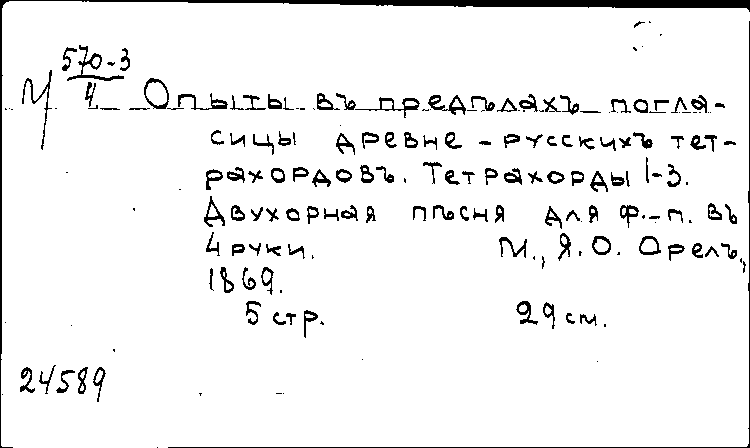 М 570-3/4 Опыты въ предѣлахъ погла-
сицы древне-русскихъ тет-
рахордовъ. Тетрахорды 1-3.
Двухорная пѣсня для ф.-п. въ
4 руки. М., Я. О. Орелъ,
1869.
5 стр. 29 см.
24589